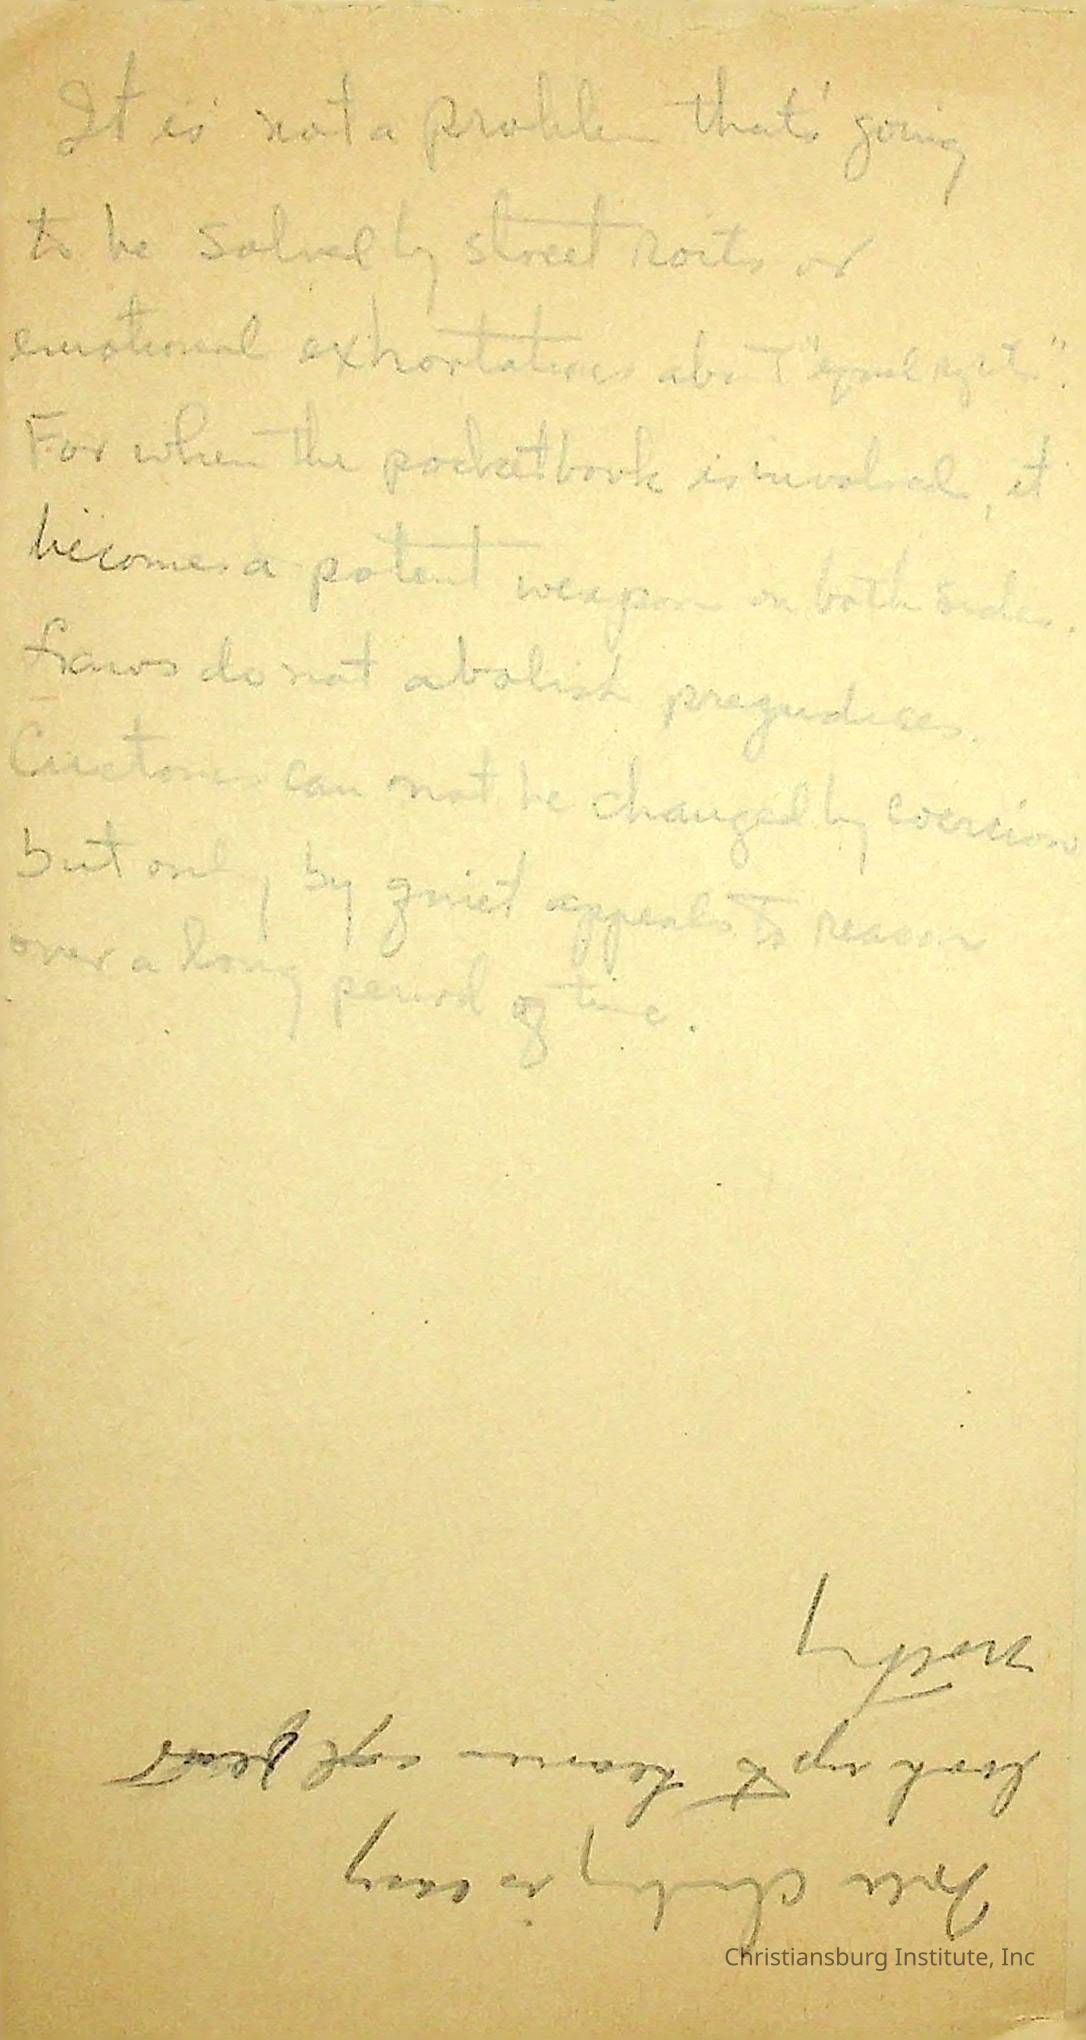 It is not a problem that's going
to be solved by street roits or
emotional exhortations about "equal rgits".
For when the pocketbook is involved, it
becomes a potent weapon on both sides.
Laws do not abolish pregudices.
Customs can not be changed by coercion
but only by quiet appeals to reason
over a long period of time.
Pole climbing is easy
look up to heaven and
Christiansburg Institute, Inc